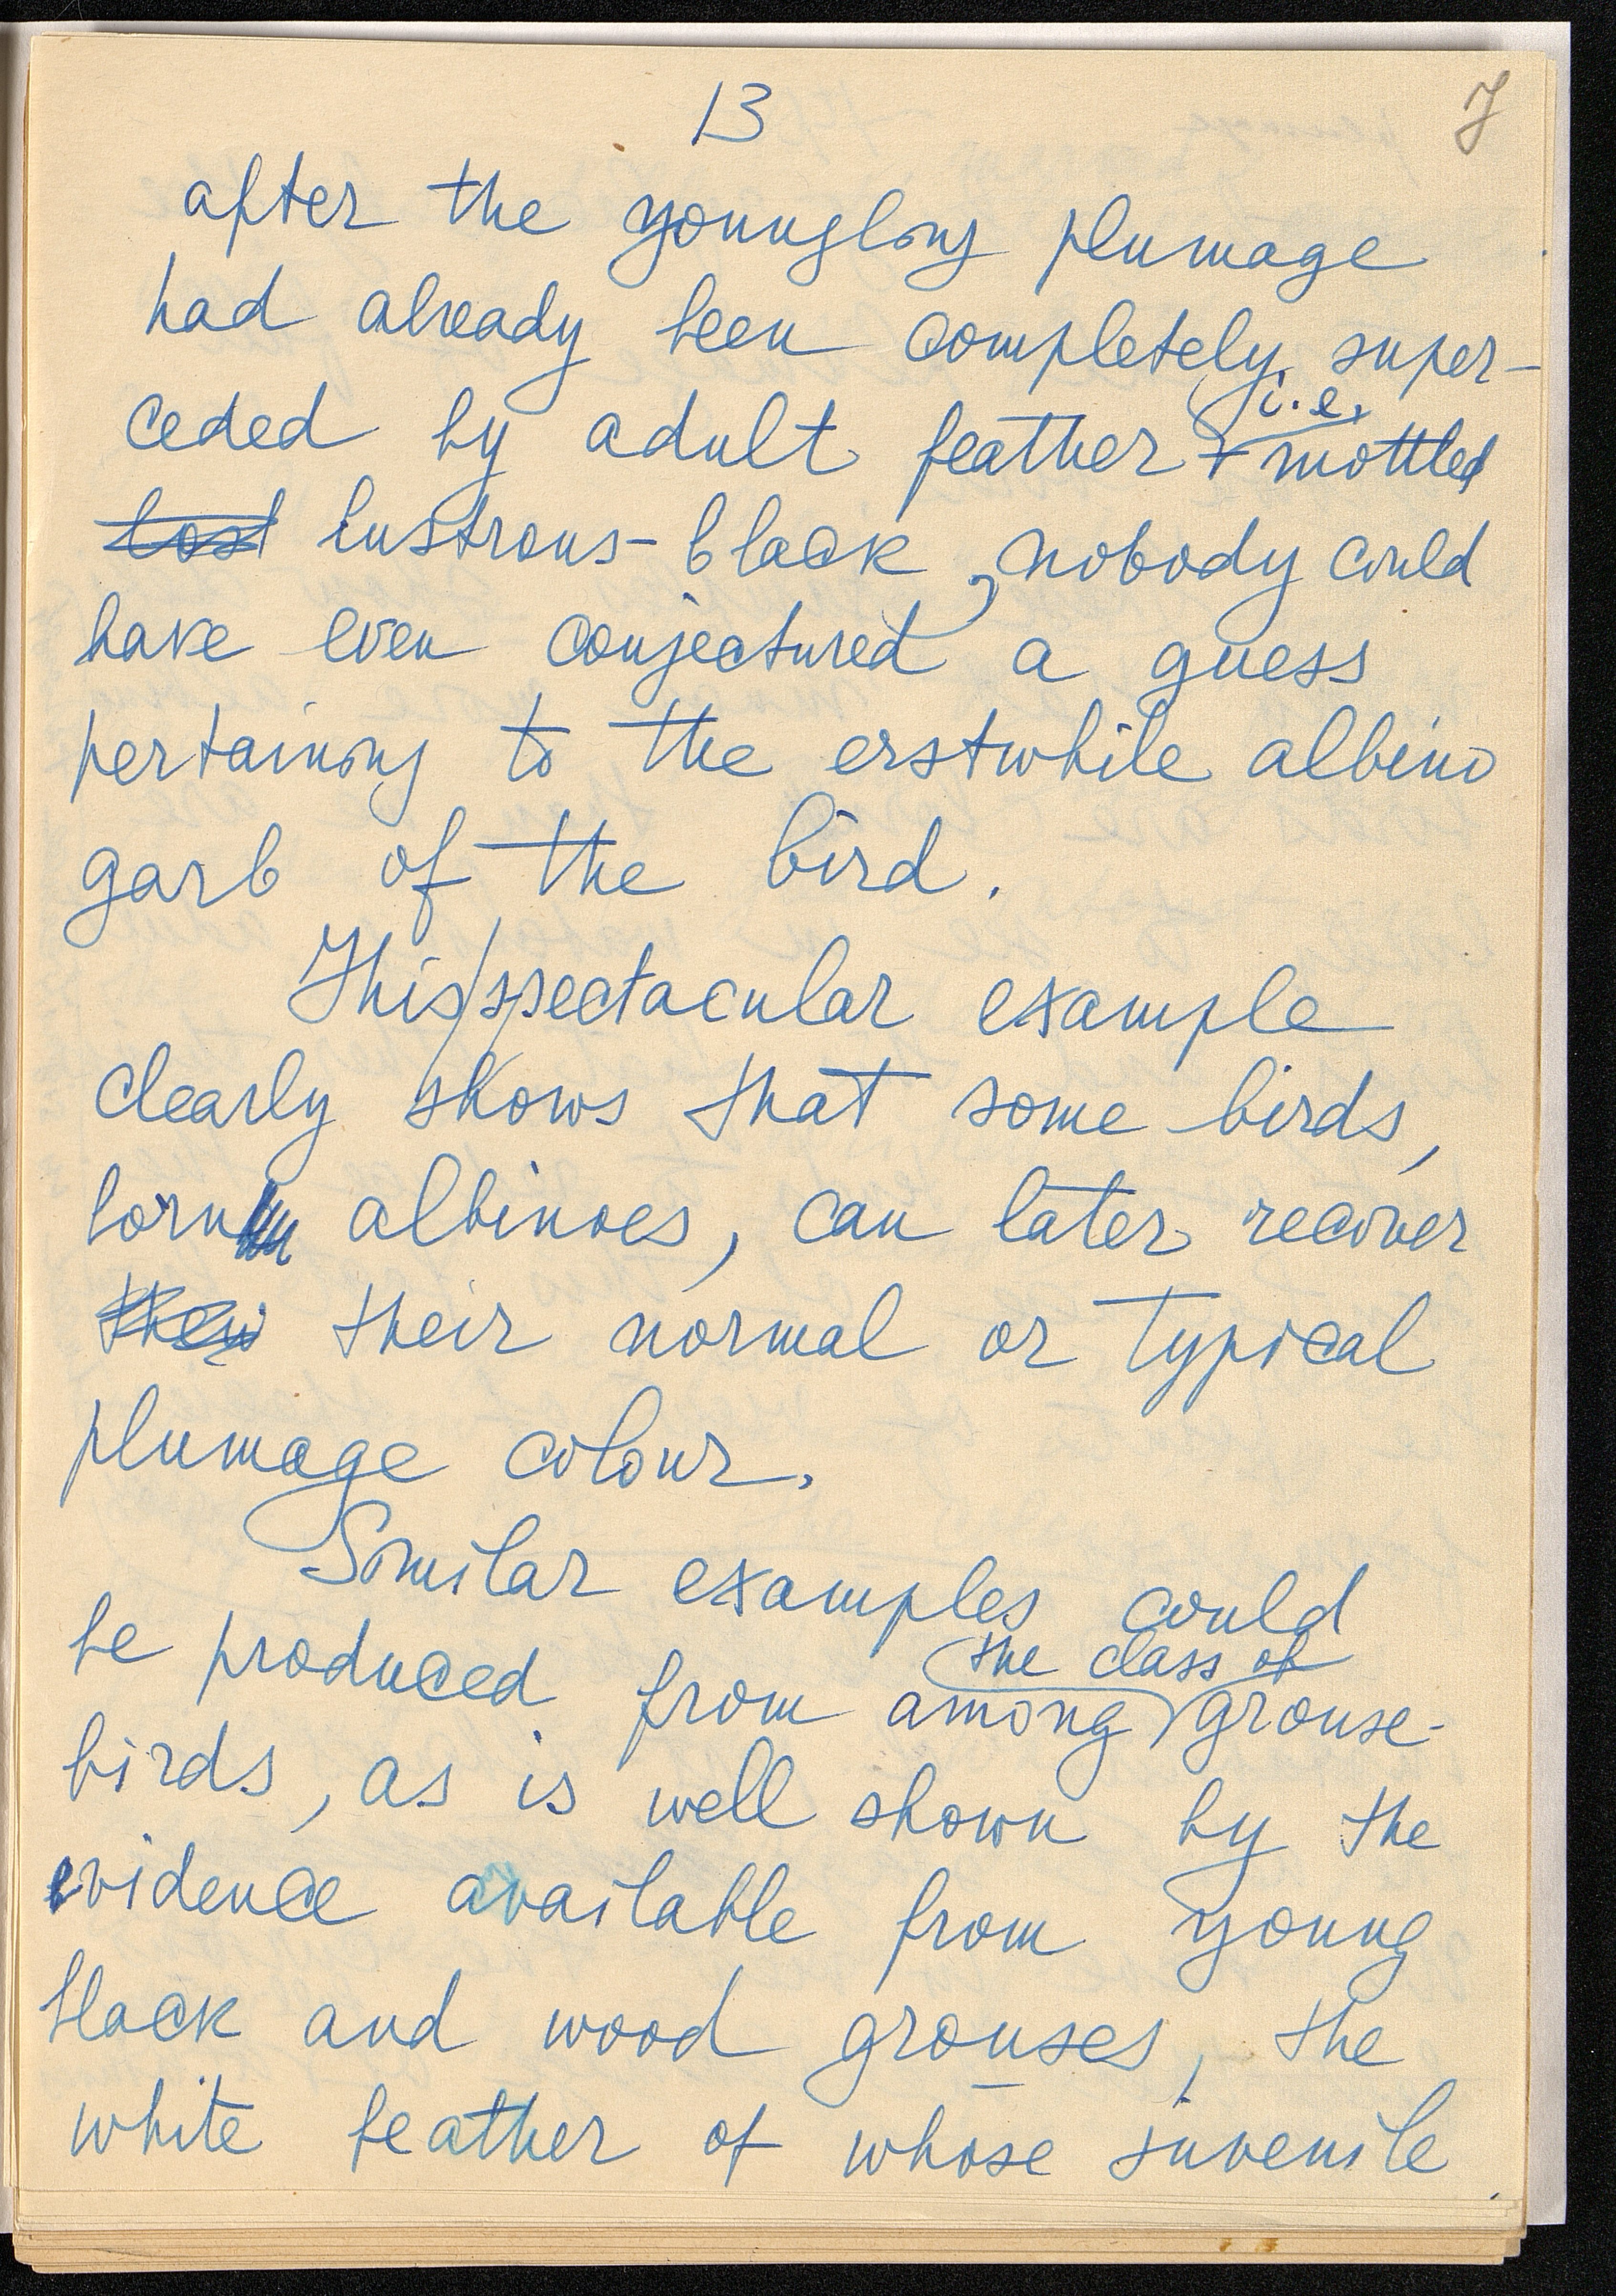 13
7
after the youngling plumage
had already been completely super-
ceded by adult feather + i.e. mottled
lost lustrous-black, nobody could
have even conjectured a guess
pertaining to the erstwhile albino
garb of the bird.
This spectacular example
clearly shows that some birds,
born albinoes, can later recover
their their normal or typical
plumage colour.
Similar examples could
be produced from among the class of grouse-
birds, as is well shown by the
evidence available from young
black and wood grouses, the
white feather of whose juvenile